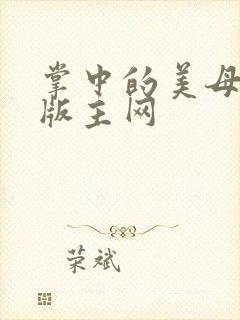 掌中的美母
版主网
荣斌